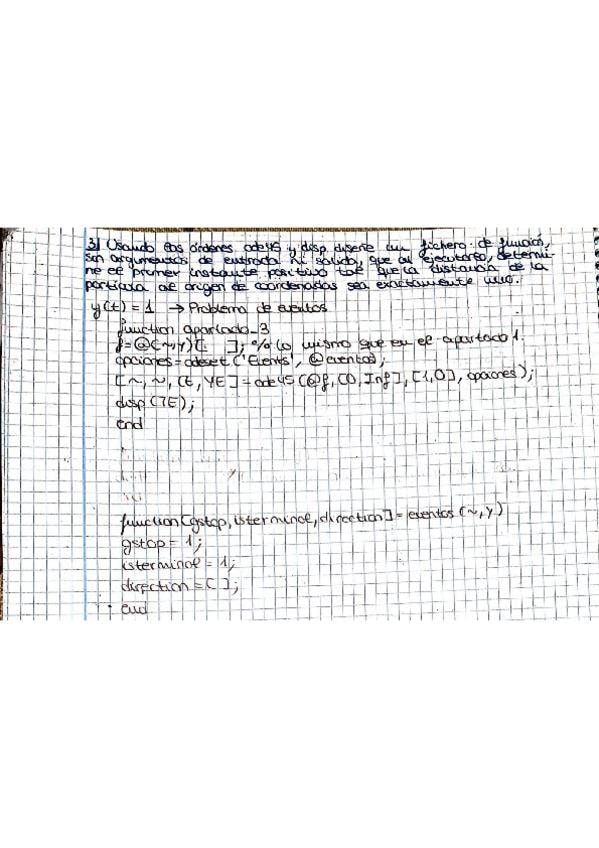 3) Usando las órdenes ode45 y disp diseñe un fichero de función,
sin argumentos de entrada ni salida, que al ejecutarlo, determi-
ne el primer instante positivo tal que la distancia de la
partícula al origen de coordenadas sea exactamente uno.
y(t) = 1 → Problema de eventos
function apartado_3
f=@(~,Y)[. ]; % Lo mismo que en el apartado 1.
opciones = odeset ('Events', @eventos);
[~,~,TE,YE] = ode45 (@f, [0,Inf], [1,0], opciones);
disp (TE);
end
function [gstop, isterminal, direction] = eventos (~,Y)
gstop = 1;
isterminal = 1;
direction = [ ];
end